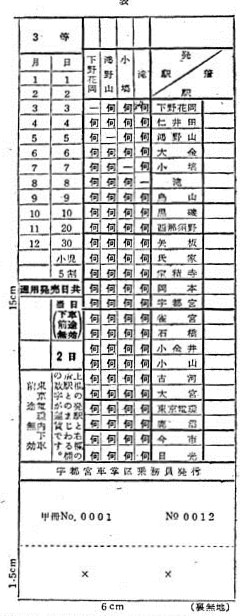 表
3 等
発
着
駅
駅
下野花岡
鴻野山
小塙
滝
月 日
1 1
2 2
3 3 一 何 何 何 下野花岡
4 4 何 何 何 何 仁井田
5 5 何 一 何 何 鴻野山
6 6 何 何 何 何 大金
7 7 何 何 一 何 小塙
8 8 何 何 何 一 滝
9 9 何 何 何 何 烏山
10 10 何 何 何 何 黒磯
11 20 何 何 何 何 西那須野
12 30 何 何 何 何 矢板
小児 何 何 何 何 氏家
5割 何 何 何 何 宝積寺
通用発売日共 何 何 何 何 岡本
当日 何 何 何 何 宇都宮
(下車前途無効) 何 何 何 何 雀宮
何 何 何 何 石橋
2日 何 何 何 何 小金井
何 何 何 何 小山
何 何 何 何 古河
何 何 何 何 大宮
何 何 何 何 東京電環
何 何 何 何 鹿沼
何 何 何 何 今市
何 何 何 何 日光
上欄の発駅と右欄の
着駅とのまじわる欄
の数字が運賃です。
東京電環内下車
前途無効
宇都宮車掌区乗務員発行
甲冊No.0001 №0012
× ×
15cm
1.5cm
6cm
(裏無地)